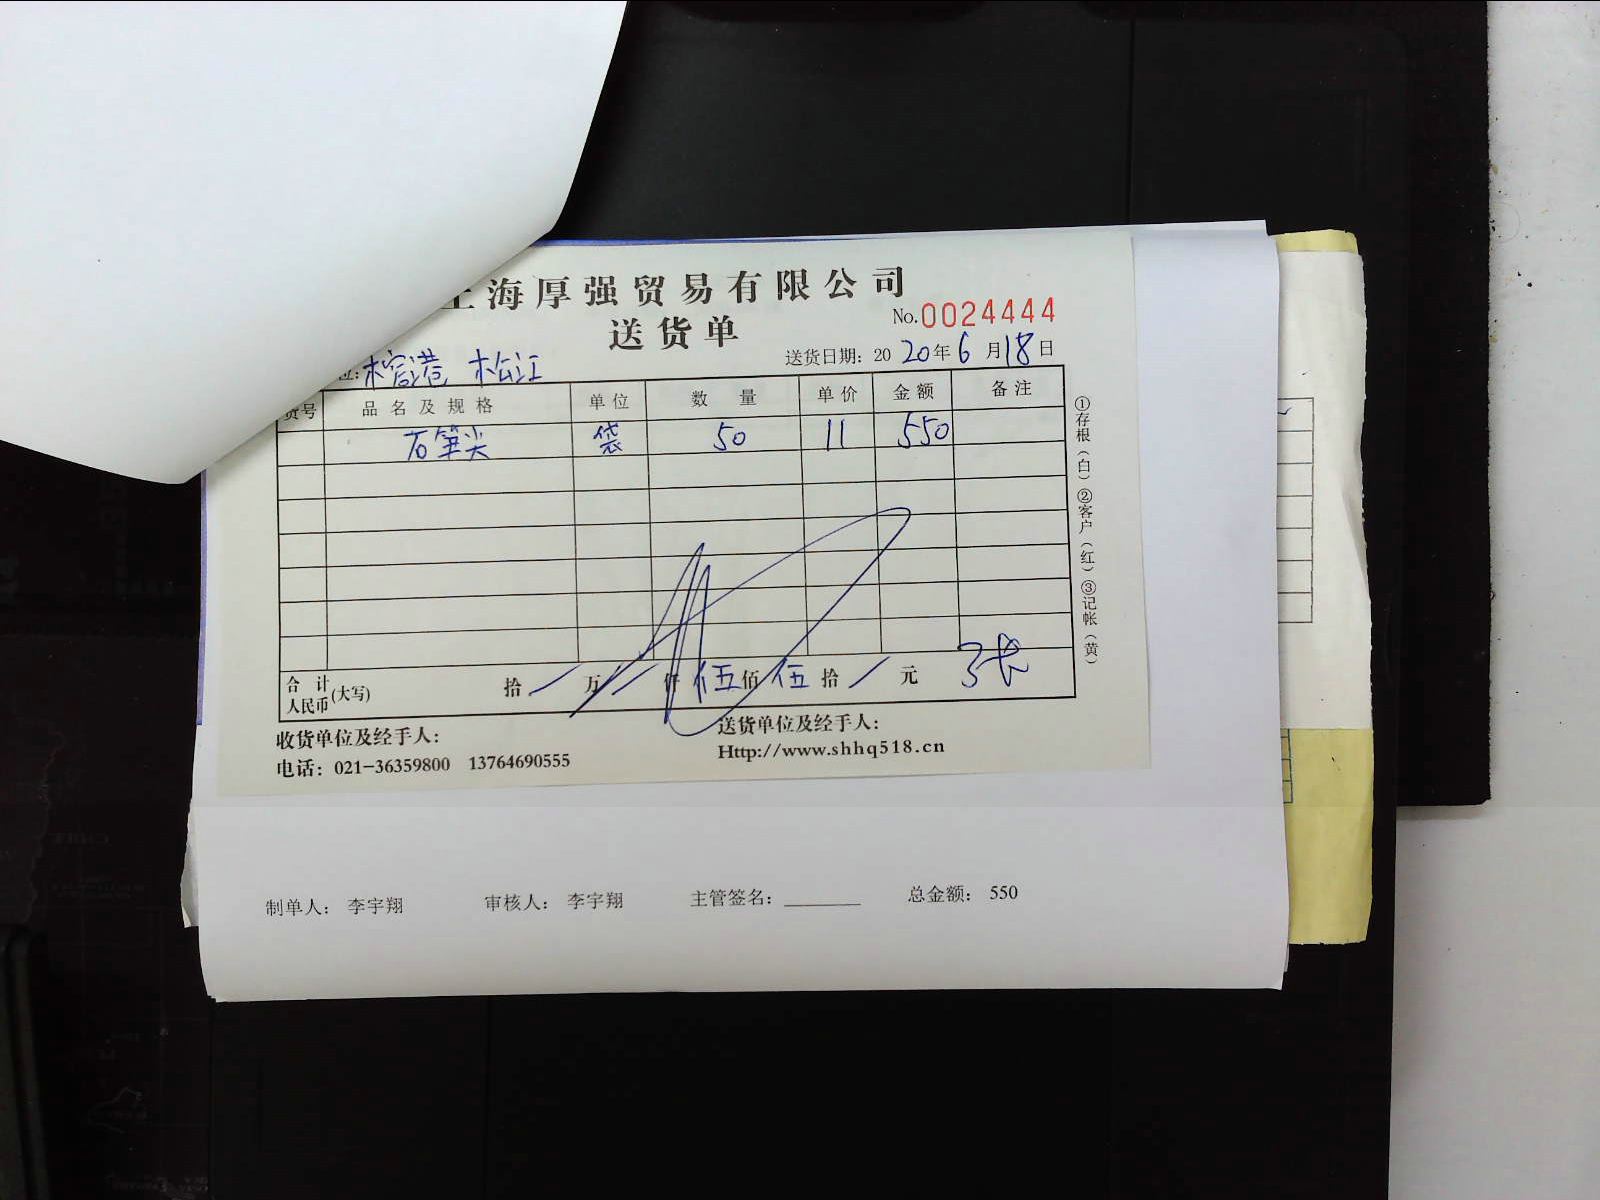 上海厚强贸易有限公司
送货单
No.0024444
位: 榕港 松江
送货日期: 2020年6月18日
货号 品名及规格 单位 数量 单价 金额 备注
石笋尖 袋 50 11 550
合计人民币(大写) 拾/万/仟伍佰伍拾/元
收货单位及经手人:
送货单位及经手人:
电话: 021-36359800 13764690555
Http://www.shhq518.cn
①存根(白)②客户(红)③记帐(黄)
制单人: 李宇翔 审核人: 李宇翔 主管签名: ________ 总金额: 550